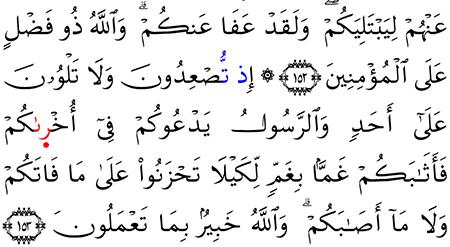 عَنْهُمْ لِيَبْتَلِيَكُمْ ۖ وَلَقَدْ عَفَا عَنكُمْ ۗ وَٱللَّهُ ذُو فَضْلٍ
عَلَى ٱلْمُؤْمِنِينَ ﴿١٥٢﴾ ۞ إِذ تُّصْعِدُونَ وَلَا تَلْوُۥنَ
عَلَىٰٓ أَحَدٍ وَٱلرَّسُولُ يَدْعُوكُمْ فِىٓ أُخْرِىٰكُمْ
فَأَثَٰبَكُمْ غَمًّۢا بِغَمٍّ لِّكَيْلَا تَحْزَنُوا۟ عَلَىٰ مَا فَاتَكُمْ
وَلَا مَآ أَصَٰبَكُمْ ۗ وَٱللَّهُ خَبِيرٌۢ بِمَا تَعْمَلُونَ ﴿١٥٣﴾